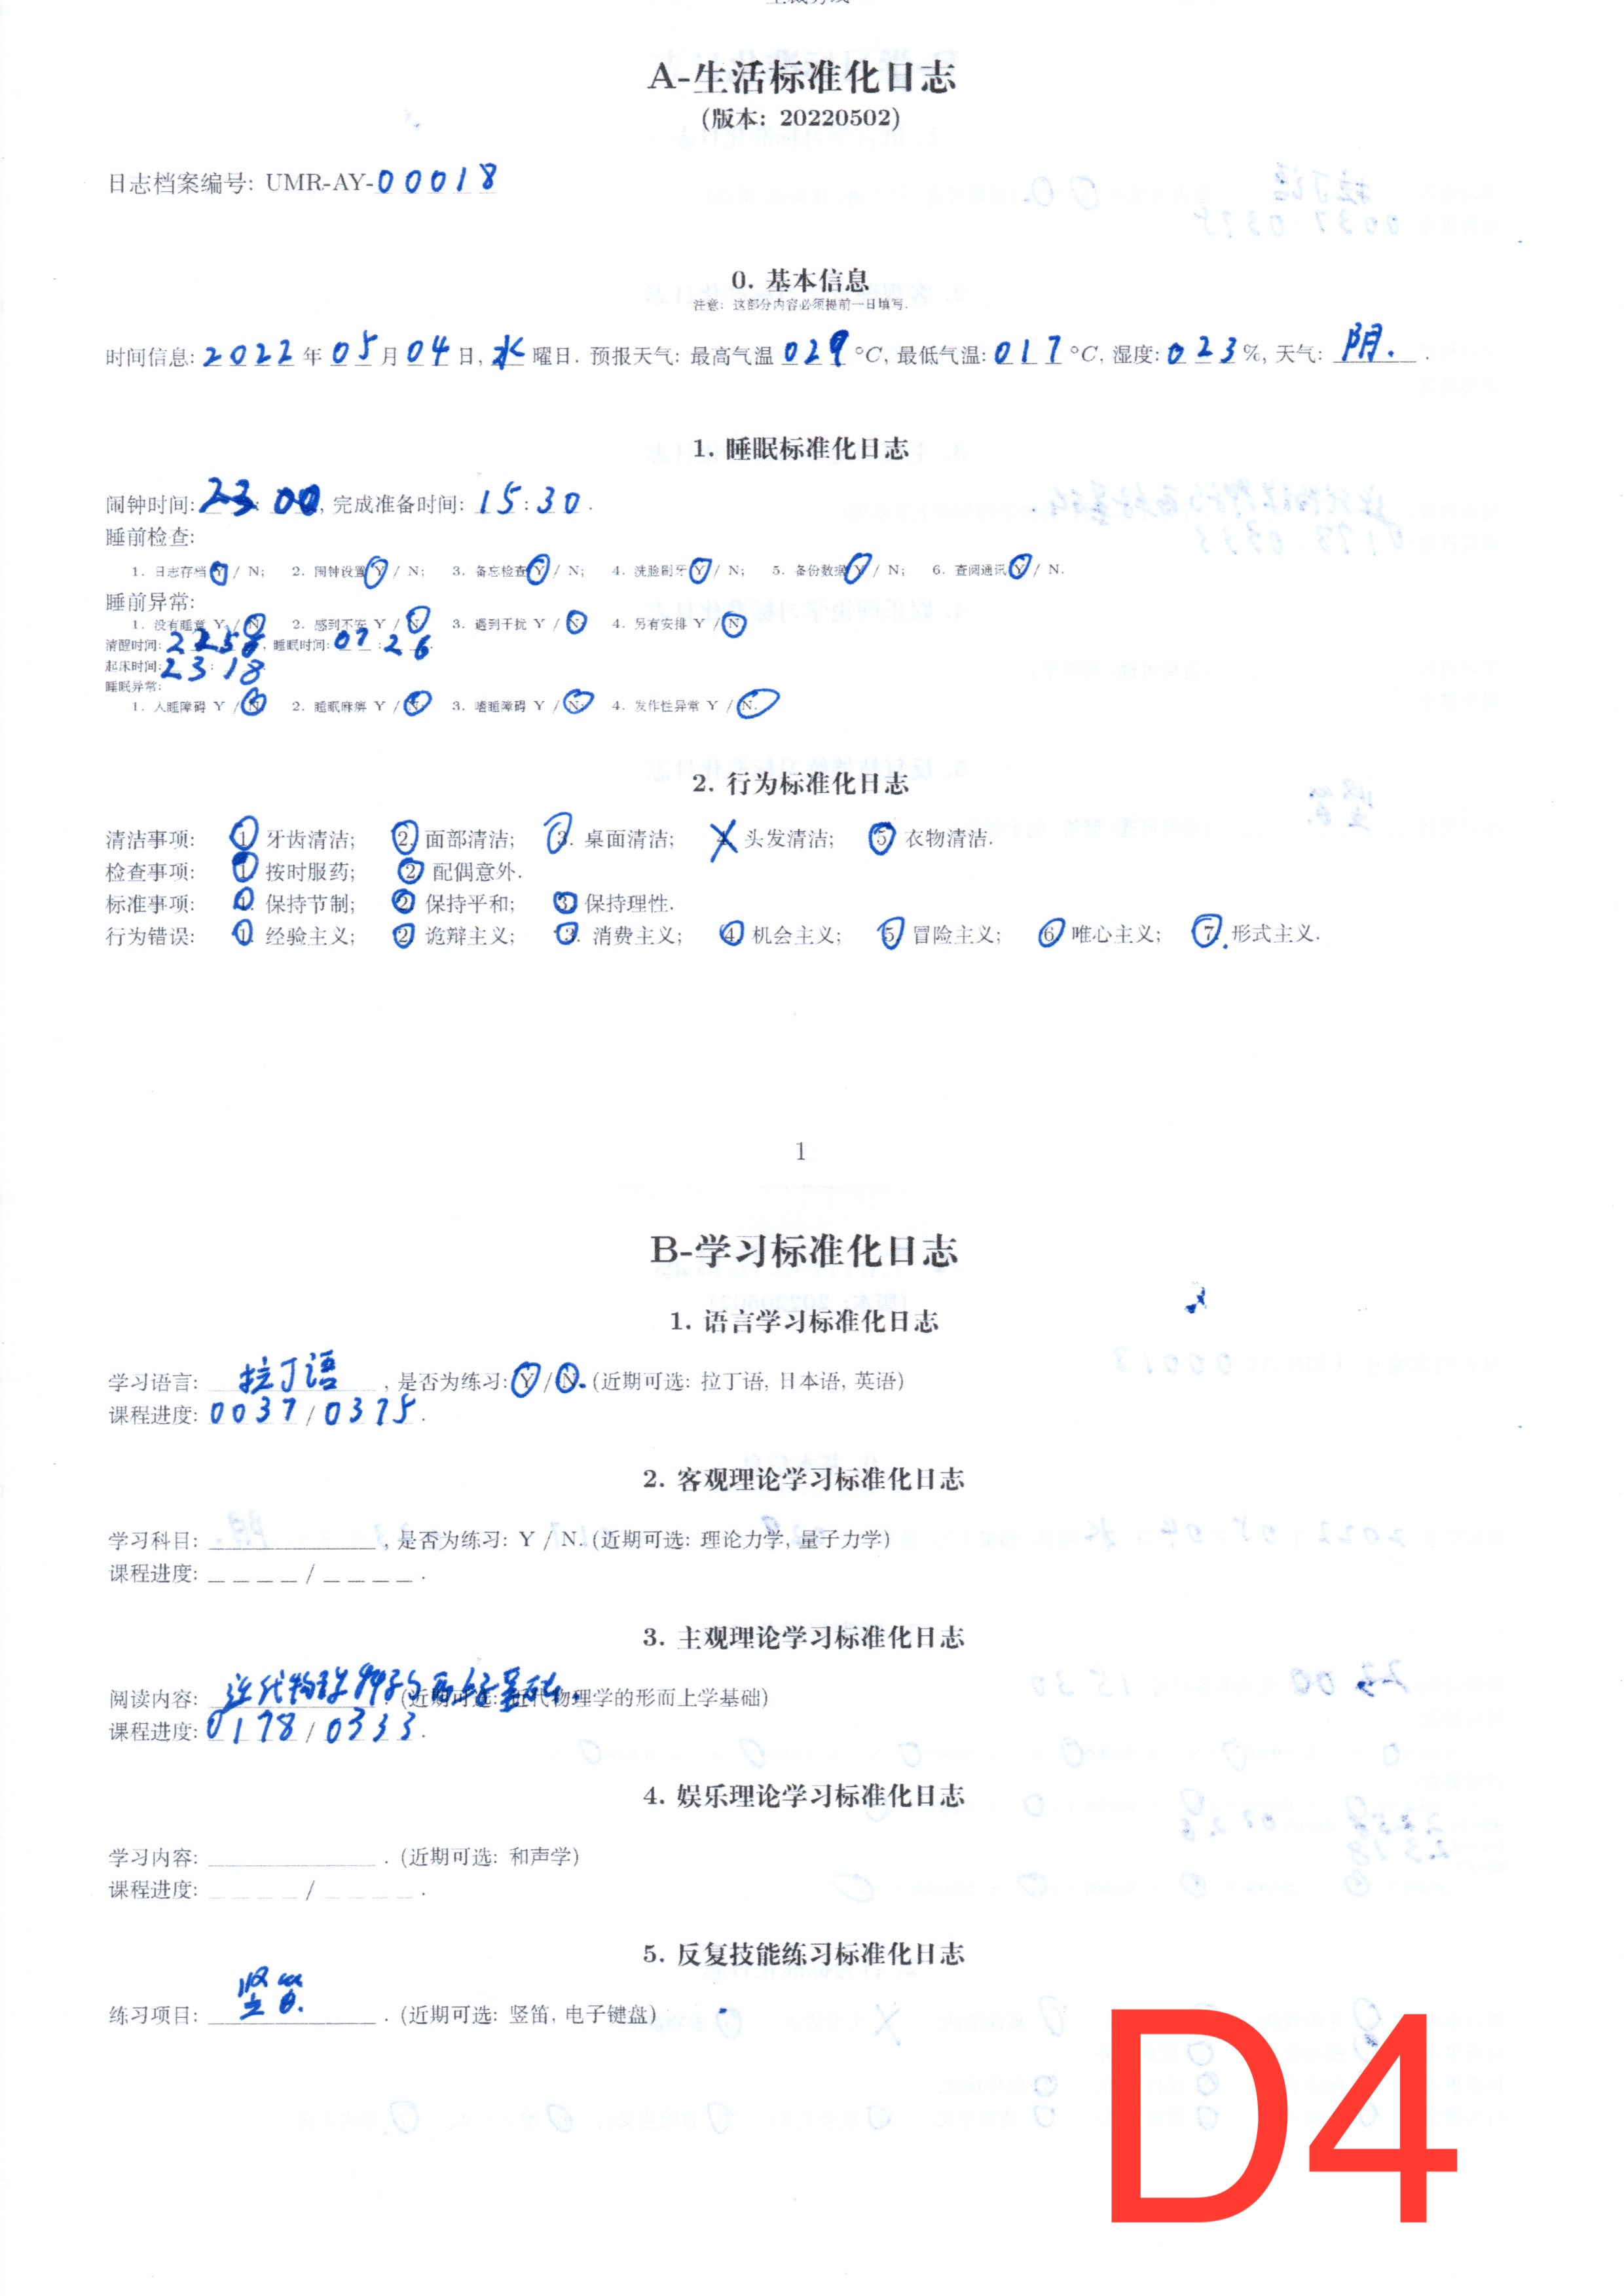 A-生活标准化日志
(版本: 20220502)
日志档案编号: UMR-AY-00018
0. 基本信息
注意: 这部分内容必须提前一日填写.
时间信息: 2022 年 05 月 04 日, 水 曜日. 预报天气: 最高气温 029 °C, 最低气温: 017 °C, 湿度: 023 %, 天气: 阴. .
1. 睡眠标准化日志
闹钟时间: 23 : 00, 完成准备时间: 15 : 30 .
睡前检查:
1. 日志存档 Y / N; 2. 闹钟设置 Y / N; 3. 备忘检查 Y / N; 4. 洗脸刷牙 Y / N; 5. 备份数据 Y / N; 6. 查阅通讯 Y / N.
睡前异常:
1. 没有睡意 Y / N; 2. 感到不安 Y / N; 3. 遇到干扰 Y / N; 4. 另有安排 Y / N.
清醒时间: 22 : 58, 睡眠时间: 07 : 26.
起床时间: 23 : 18
睡眠异常:
1. 入睡障碍 Y / N; 2. 睡眠麻痹 Y / N; 3. 嗜睡障碍 Y / N; 4. 发作性异常 Y / N.
2. 行为标准化日志
清洁事项: 1. 牙齿清洁; 2. 面部清洁; 3. 桌面清洁; 4. 头发清洁; 5. 衣物清洁.
检查事项: 1. 按时服药; 2. 配偶意外.
标准事项: 1. 保持节制; 2. 保持平和; 3. 保持理性.
行为错误: 1. 经验主义; 2. 诡辩主义; 3. 消费主义; 4. 机会主义; 5. 冒险主义; 6. 唯心主义; 7. 形式主义.
1
B-学习标准化日志
1. 语言学习标准化日志
学习语言: 拉丁语 , 是否为练习: Y / N. (近期可选: 拉丁语, 日本语, 英语)
课程进度: 0037 / 0375 .
2. 客观理论学习标准化日志
学习科目: , 是否为练习: Y / N. (近期可选: 理论力学, 量子力学)
课程进度: _ _ _ _ / _ _ _ _ .
3. 主观理论学习标准化日志
阅读内容: 近代物理学的形而上学基础. (近期可选: 近代物理学的形而上学基础)
课程进度: 0178 / 0333 .
4. 娱乐理论学习标准化日志
学习内容: . (近期可选: 和声学)
课程进度: _ _ _ _ / _ _ _ _ .
5. 反复技能练习标准化日志
练习项目: 竖笛. . (近期可选: 竖笛, 电子键盘)
D4